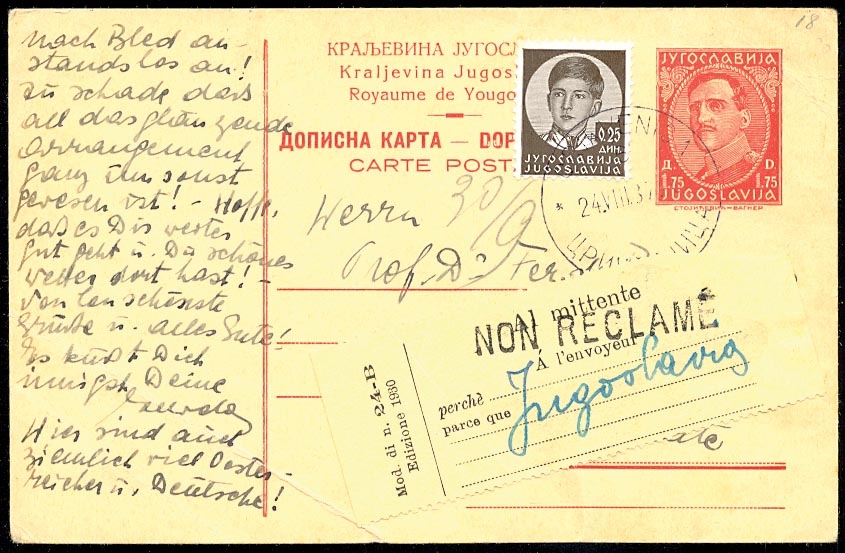 18
nach Bled an-
standslos an!
zu schade dass
all das glänzende
Arrangement
ganz umsonst
gewesen ist! - Hoffe,
dass es Dir weiter
gut geht u. Du schönes
Wetter dort hast! -
Von den schönste
Grüße u. alles Gute!
Es küßt Dich
innigst Deine
Hier sind auch
ziemlich viel Oester-
reicher u. Deutsche!
КРАЉЕВИНА ЈУГОСЛ
Kraljevina Jugos
Royaume de Yougo
ДОПИСНА КАРТА — DOP
CARTE POST
0.25
ДИН.
ЈУГОСЛАВИЈА
JUGOSLAVIJA
ЈУГОСЛАВИЈА
Д. D.
1.75 1.75
JUGOSLAVIJA
СТОЈИЋЕВИЋ—ВАГНЕР
ENI
* 24.VIII.37
30/9
Herrn
Prof. Dr. Fer
Al mittente
NON RÉCLAMÉ
Á l'envoyeur
perchè
parce que Jugoslavia
Mod. di n. 24-B
Edizione 1930